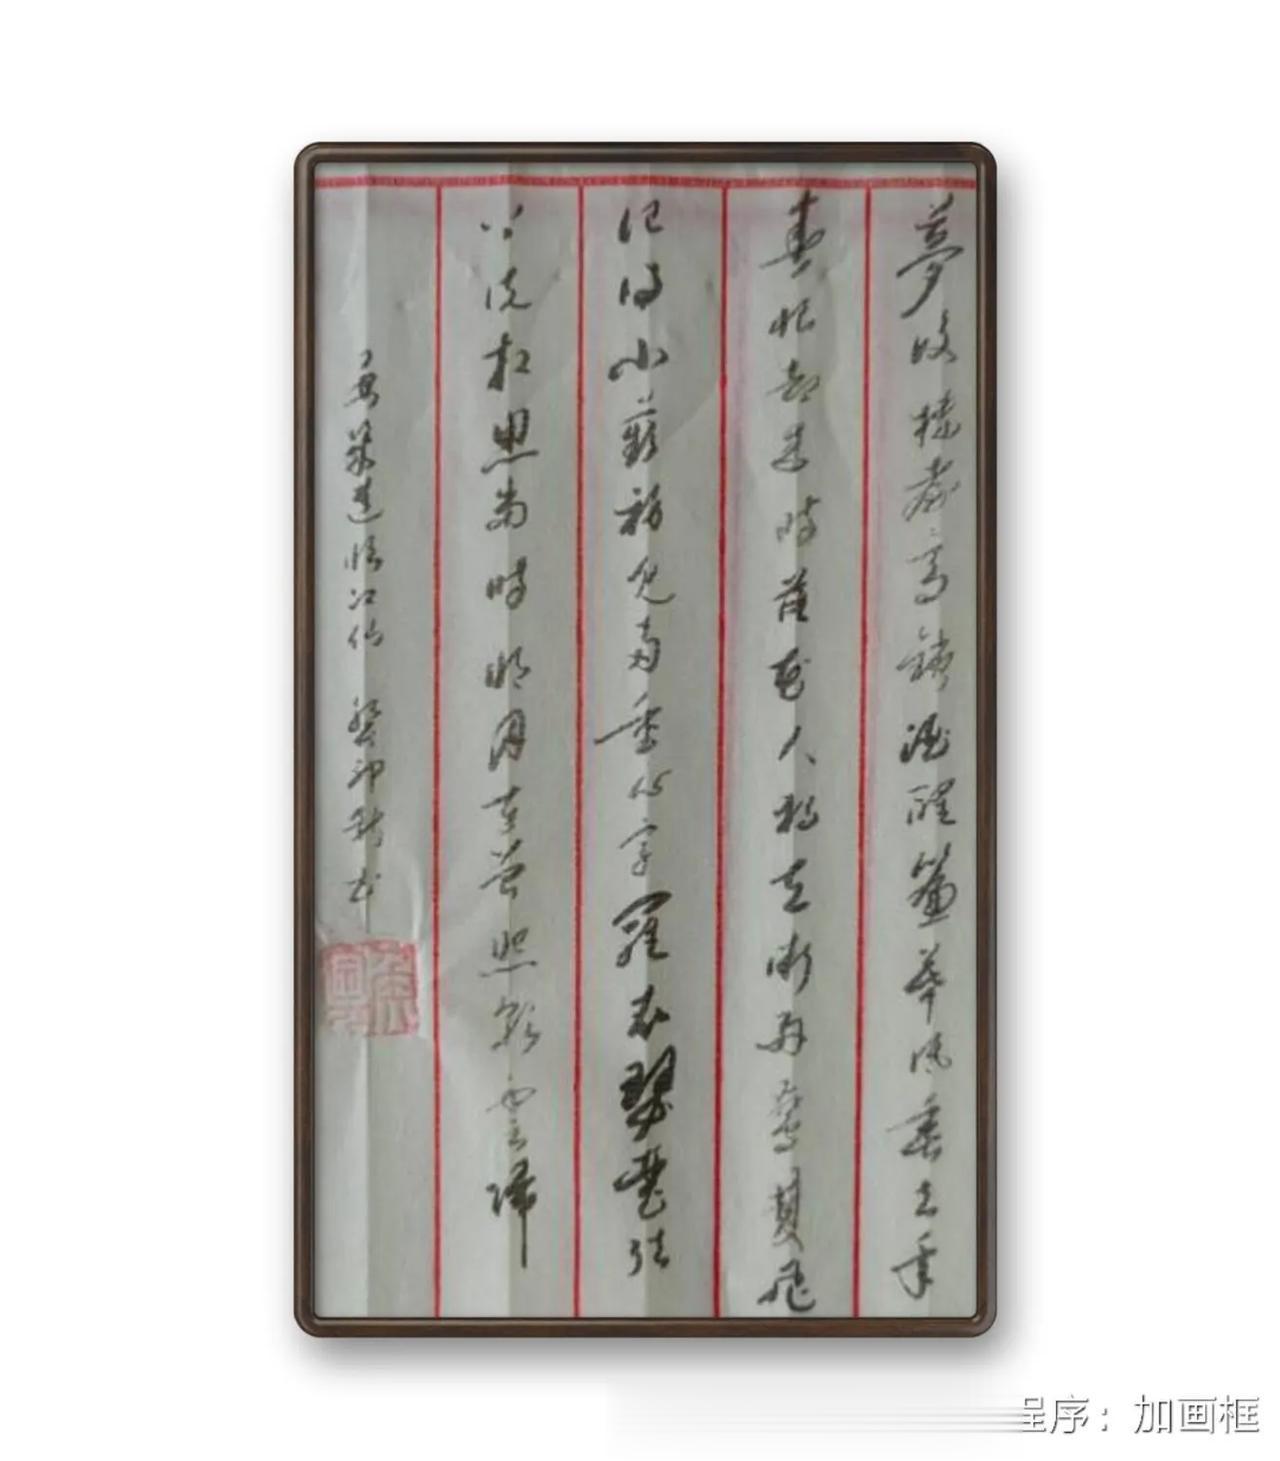 夢後樓臺高鎖酒醒簾幕低垂去年
春恨卻來時落花人獨立微雨燕雙飛
記得小蘋初見兩重心字羅衣琵琶弦
上說相思當時明月在曾照彩雲歸
晏幾道臨江仙 癸卯秋書
程序：加画框